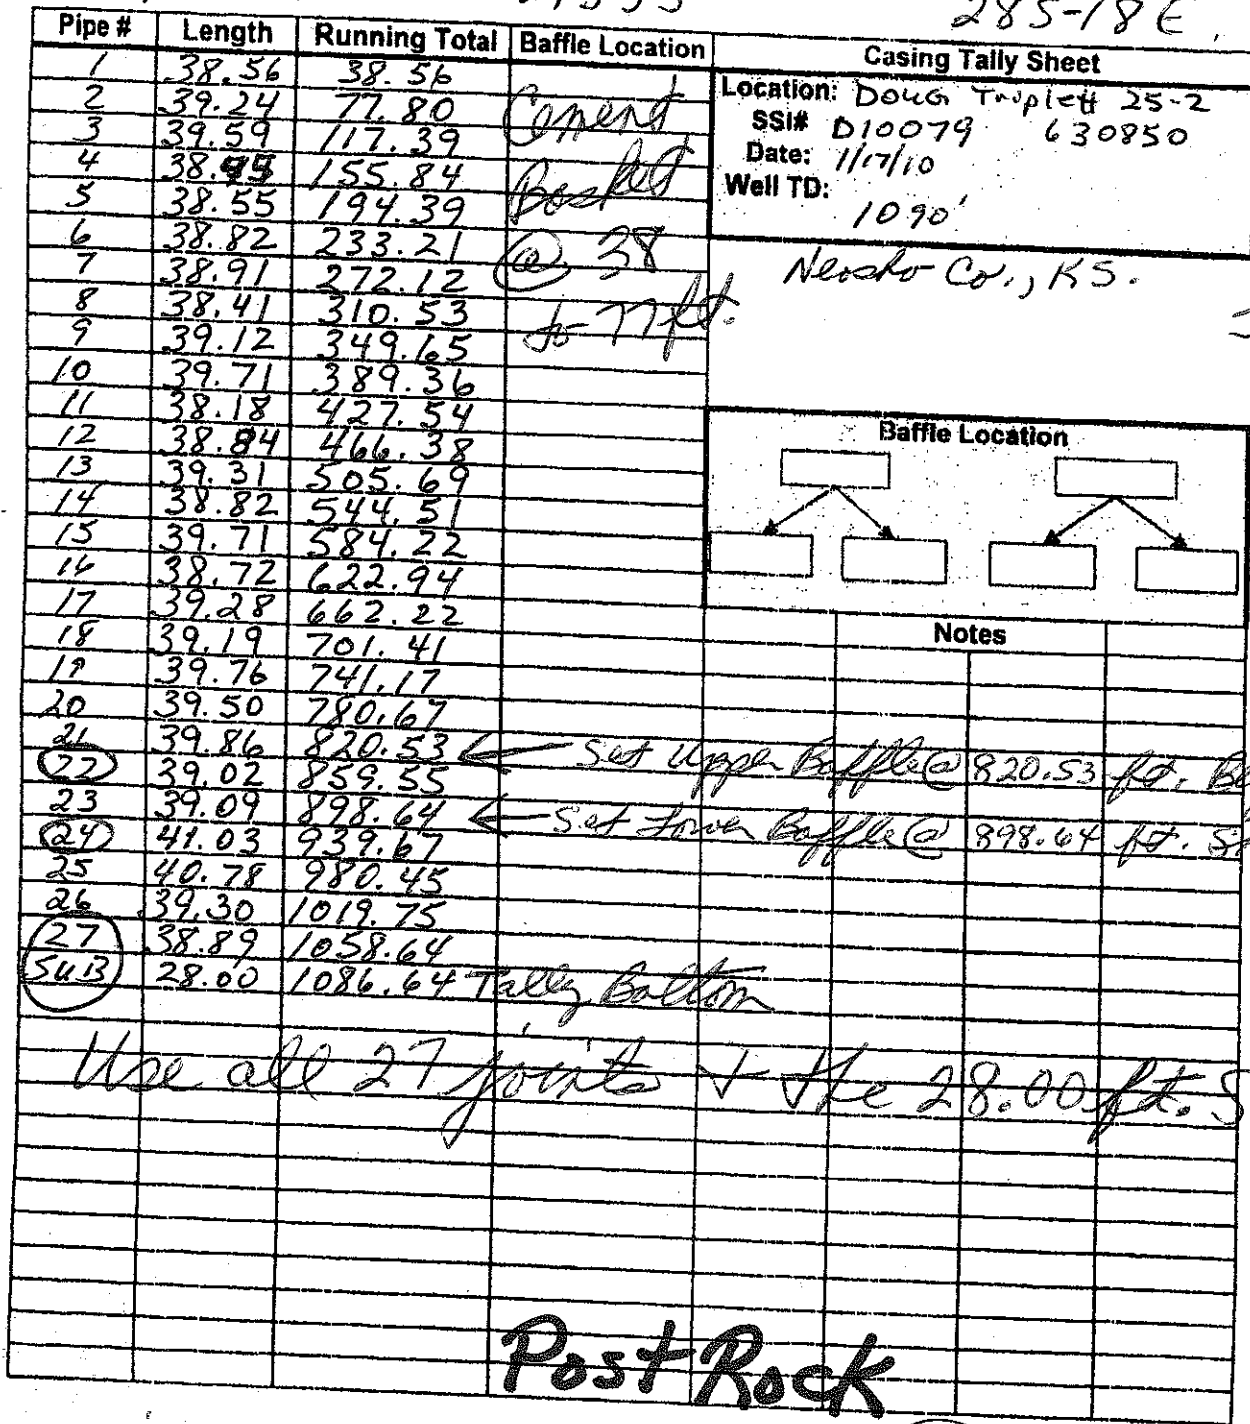 28S-18E
Pipe # Length Running Total Baffle Location Casing Tally Sheet
1 38.56 38.56
2 39.24 77.80 Cement
3 39.59 117.39
4 155.84 Basket
5 38.55 194.39
6 38.82 233.21 @ 38
7 38.91 272.12
8 38.41 310.53 to 77 ft.
9 39.12 349.65
10 39.71 389.36
11 38.18 427.54
12 38.84 466.38
13 39.31 505.69
14 38.82 544.51
15 39.71 584.22
16 38.72 622.94
17 39.28 662.22
18 39.19 701.41
19 39.76 741.17
20 39.50 780.67
21 39.86 820.53 ← Set Upper Baffle @ 820.53 ft.
22 39.02 859.55
23 39.09 898.64 ← Set Lower Baffle @ 898.64 ft.
24 41.03 939.67
25 40.78 980.45
26 39.30 1019.75
27 38.89 1058.64
SUB 28.00 1086.64 Tally Bottom
Use all 27 joints + the 28.00 ft. S
Location: Doug Triplett 25-2
SSI# D10079 630850
Date: 1/17/10
Well TD:
1090'
Neosho Co., KS.
Baffle Location
Notes
Post Rock